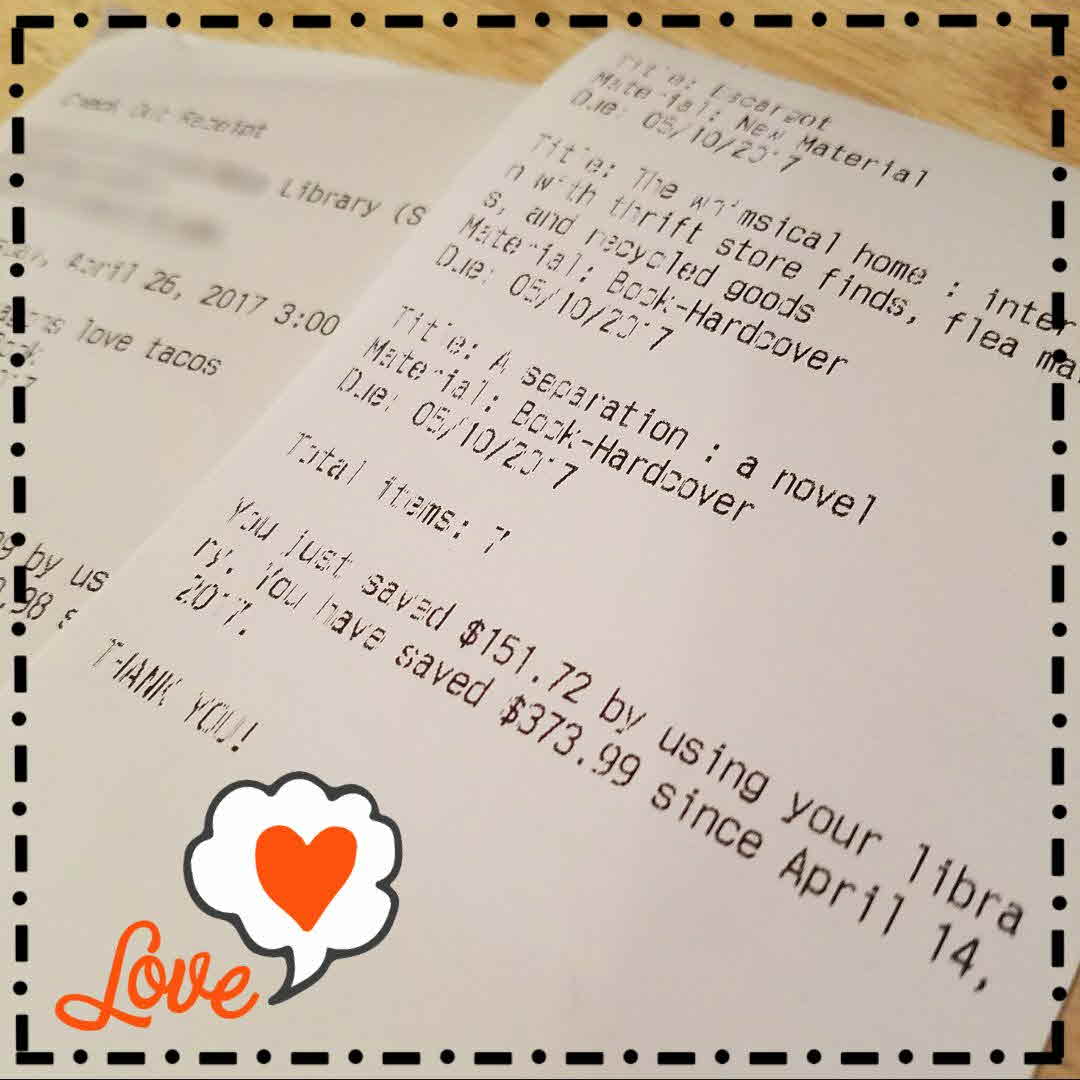 Check Out Receipt
Library (S
April 26, 2017 3:00
love tacos
by us
.98 s
Title: Escargot
Material: New Material
Due: 05/10/2017
Title: The whimsical home : inter
n with thrift store finds, flea ma
s, and recycled goods
Material: Book-Hardcover
Due: 05/10/2017
Title: A separation : a novel
Material: Book-Hardcover
Due: 05/10/2017
Total items: 7
You just saved $151.72 by using your libra
ry. You have saved $373.99 since April 14,
2017.
THANK YOU!
Love